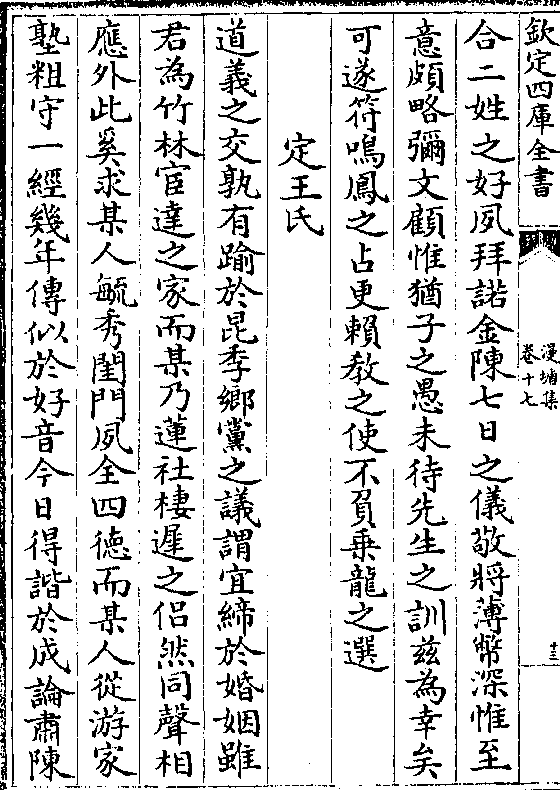 欽定四庫全書
漫塘集
卷十七
十三
合二姓之好夙拜諾金陳七日之儀敬將薄幣深惟至
意頗略彌文顧惟猶子之愚未待先生之訓兹為幸矣
可遂符鳴鳳之占更賴敎之使不負乗龍之選
定王氏
道義之交孰有踰於昆季鄉黨之議謂宜締於婚姻雖
君為竹林宦達之家而某乃蓮社棲遲之侣然同聲相
應外此奚求某人毓秀閨門夙全四德而某人從游家
塾粗守一經幾年傳似於好音今日得諧於成論肅陳